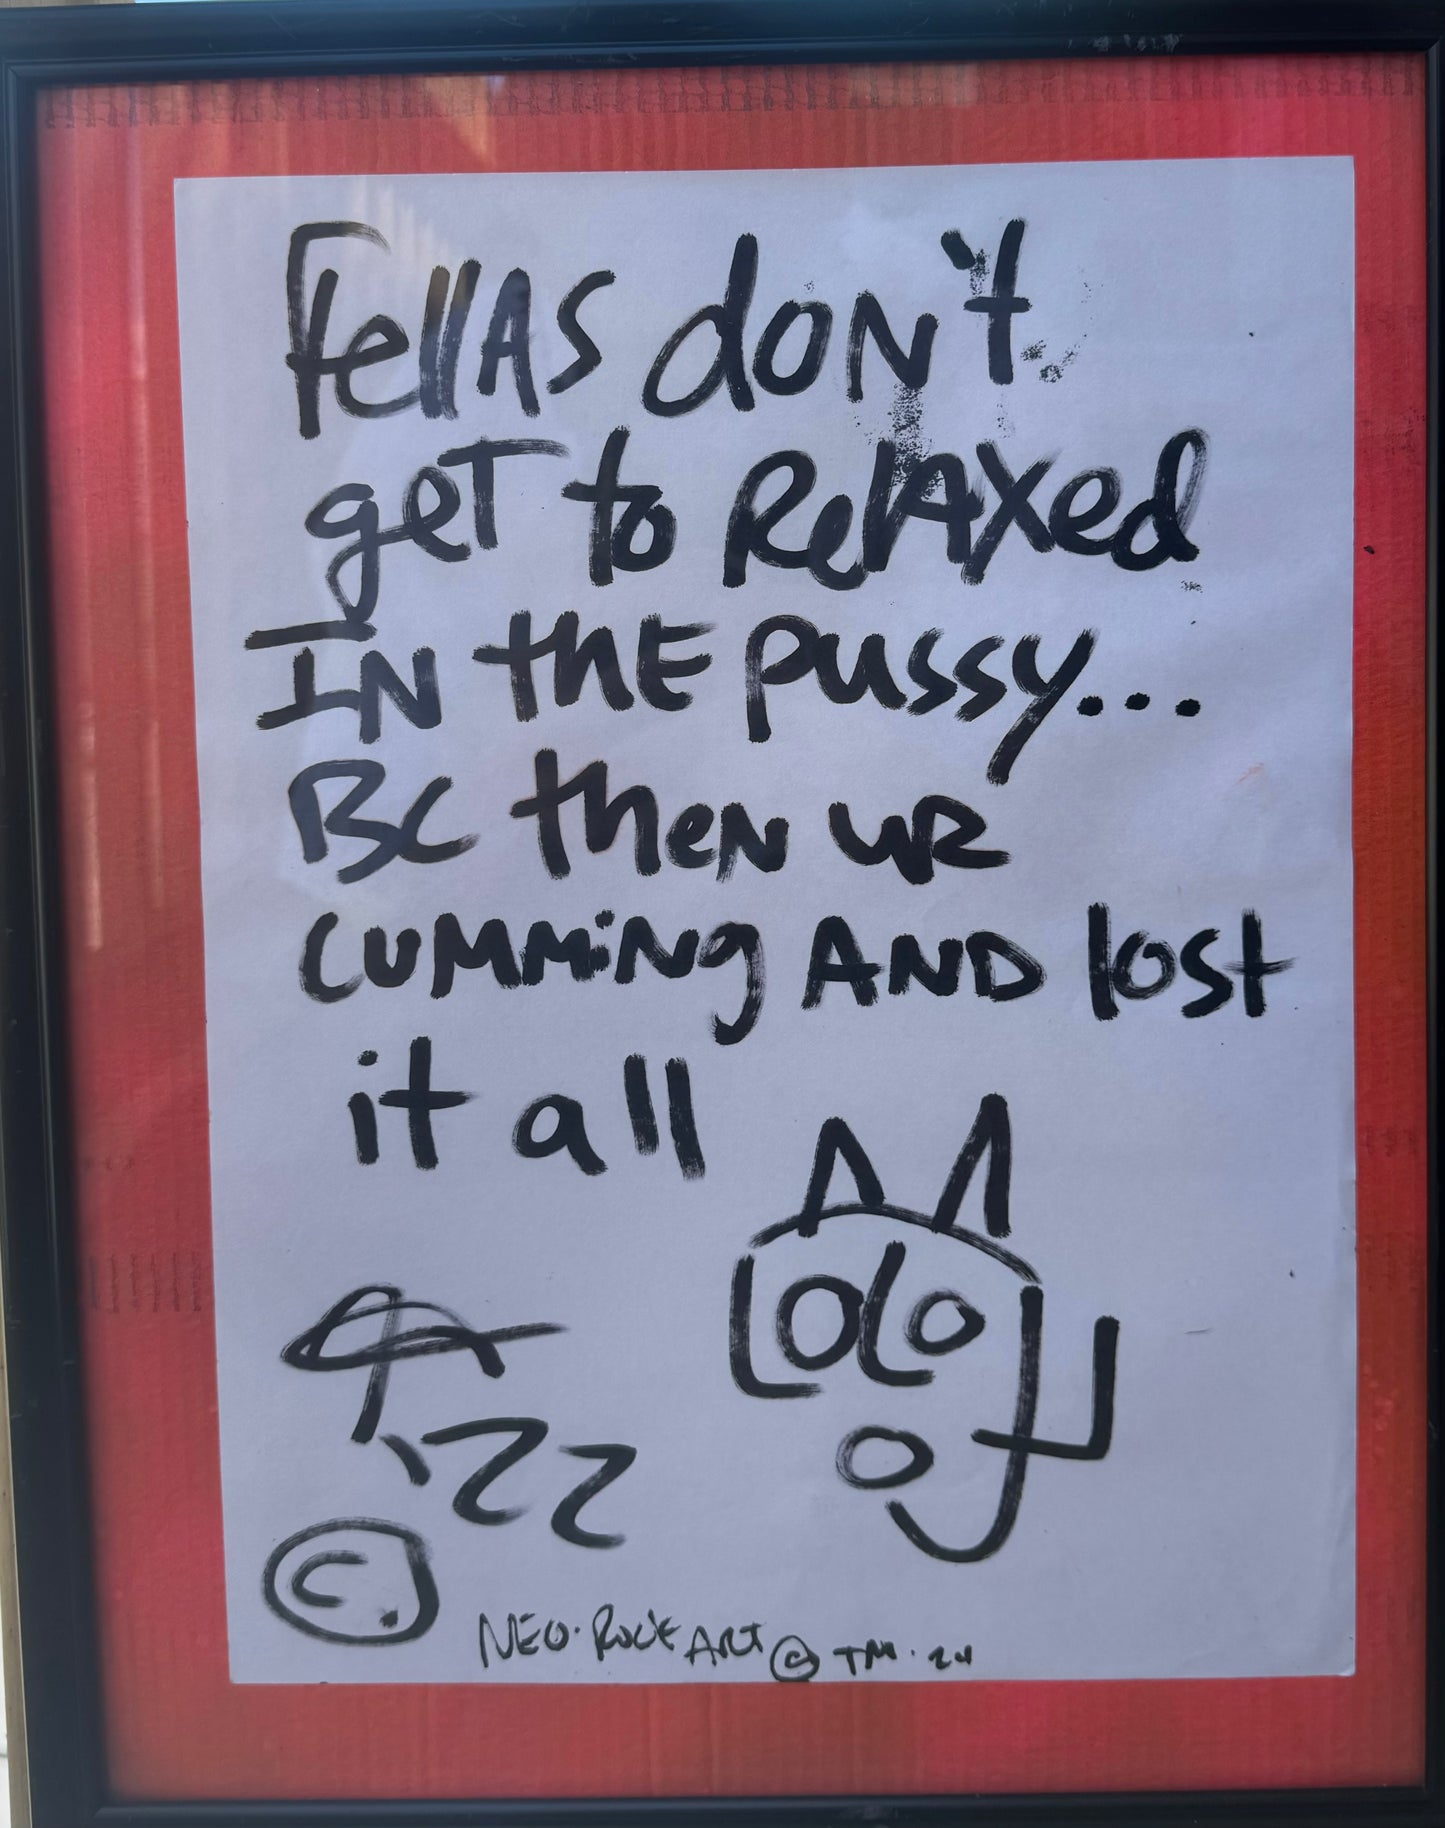 FellAS doN't
geT to RelAXed
IN thE pussy...
BC theN uR
cuMMiNg AND lost
it all
'22
©
NEO·ROCK ART © TM · 24